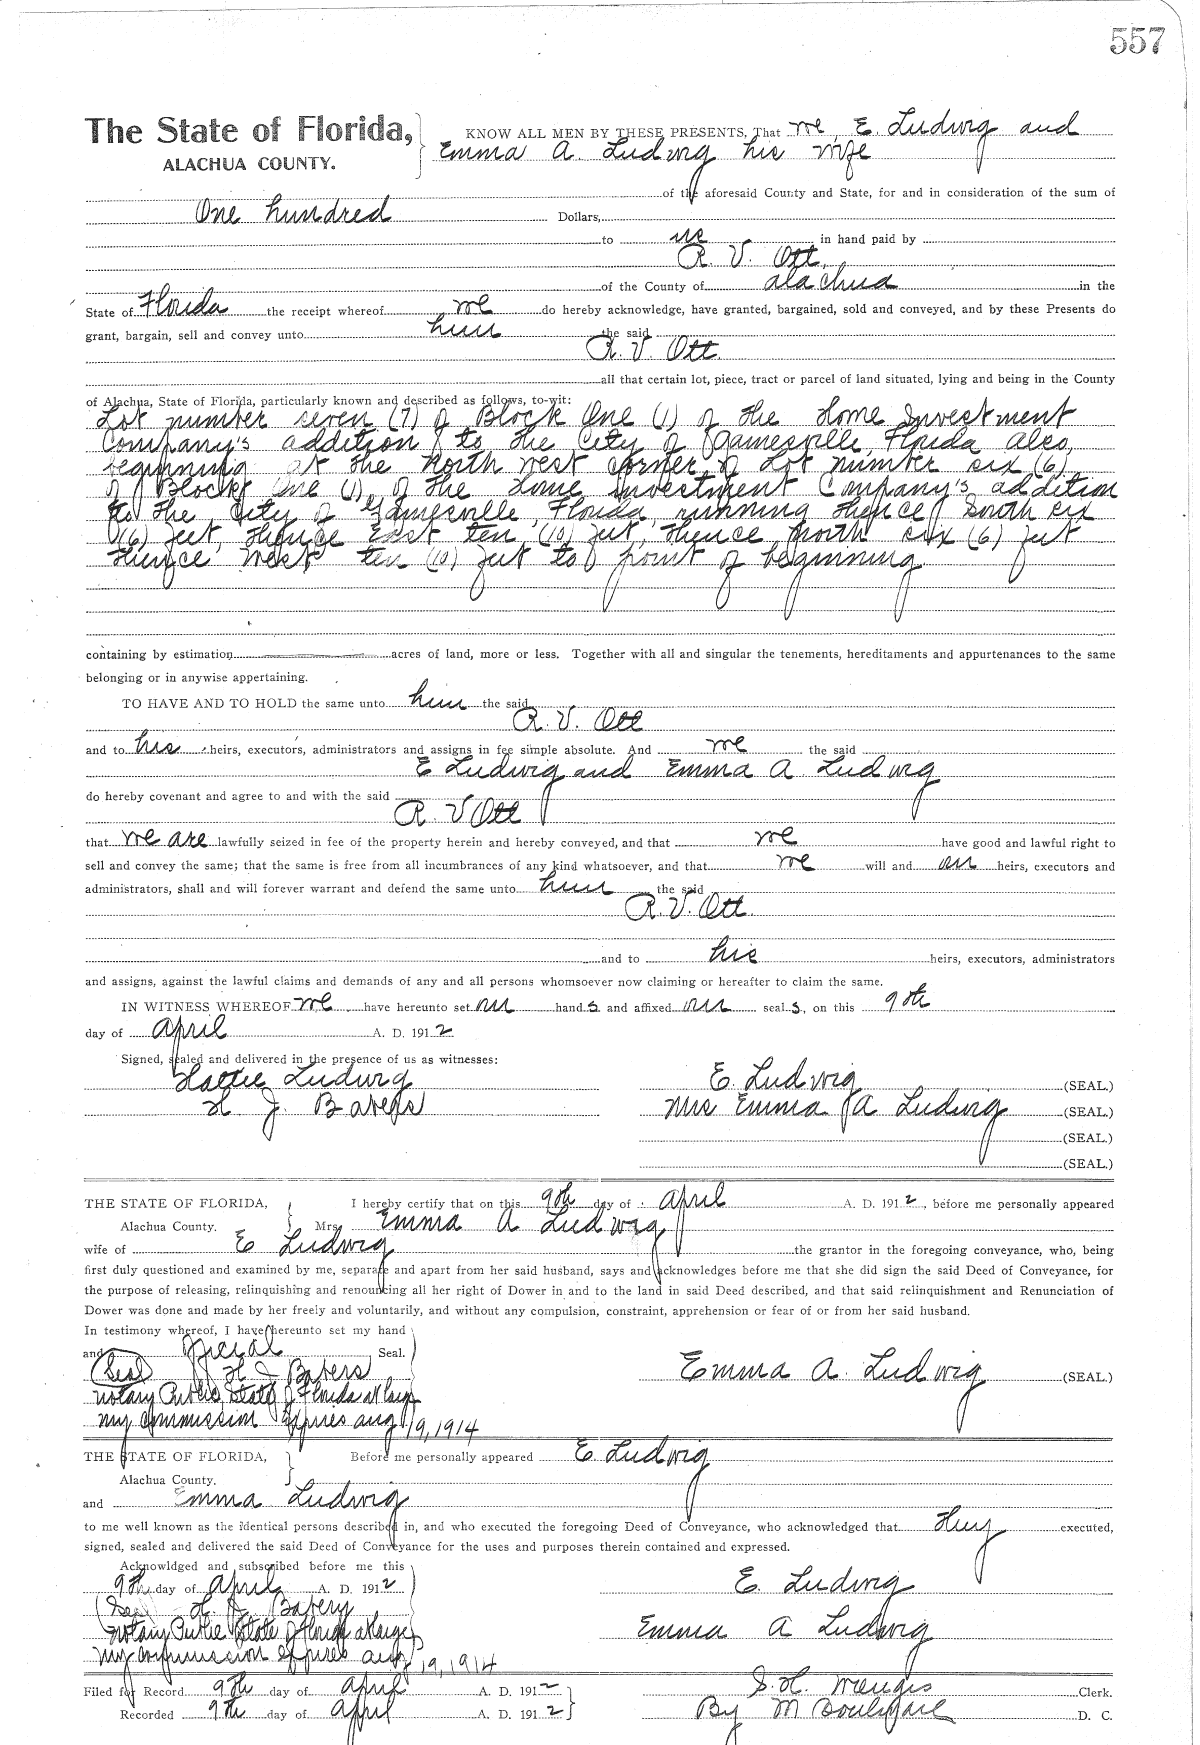 557
The State of Florida, KNOW ALL MEN BY THESE PRESENTS, That we, E. Ludwig and
ALACHUA COUNTY. Emma A. Ludwig his wife
of the aforesaid County and State, for and in consideration of the sum of
One hundred Dollars,
to us in hand paid by
R. V. Ott,
of the County of Alachua in the
State of Florida the receipt whereof we do hereby acknowledge, have granted, bargained, sold and conveyed, and by these Presents do
grant, bargain, sell and convey unto him the said
R. V. Ott.
all that certain lot, piece, tract or parcel of land situated, lying and being in the County
of Alachua, State of Florida, particularly known and described as follows, to-wit:
Lot number seven (7) of Block One (1) of the Home Investment
Company's addition to the City of Gainesville, Florida also,
beginning at the North west corner of Lot number six (6)
of Block One (1), of the Home Investment Company's addition
to the City of Gainesville, Florida, running thence South six
(6) feet, thence East ten (10) feet, thence north six (6) feet
thence West ten (10) feet to point of beginning.
containing by estimation acres of land, more or less. Together with all and singular the tenements, hereditaments and appurtenances to the same
belonging or in anywise appertaining.
TO HAVE AND TO HOLD the same unto him the said
R. V. Ott
and to his heirs, executors, administrators and assigns in fee simple absolute. And we the said
E Ludwig and Emma A Ludwig
do hereby covenant and agree to and with the said
R. V Ott
that we are lawfully seized in fee of the property herein and hereby conveyed, and that we have good and lawful right to
sell and convey the same; that the same is free from all incumbrances of any kind whatsoever, and that we will and our heirs, executors and
administrators, shall and will forever warrant and defend the same unto him the said
R. V. Ott.
and to his heirs, executors, administrators
and assigns, against the lawful claims and demands of any and all persons whomsoever now claiming or hereafter to claim the same.
IN WITNESS WHEREOF we have hereunto set our hand s and affixed our seal s, on this 9th
day of April A. D. 191 2
Signed, sealed and delivered in the presence of us as witnesses:
Hattie Ludwig E. Ludwig (SEAL.)
H. J. Mrs Emma A Ludwig (SEAL.)
(SEAL.)
(SEAL.)
THE STATE OF FLORIDA, I hereby certify that on this 9th day of April A. D. 191 2, before me personally appeared
Alachua County. Mrs. Emma A Ludwig
wife of E Ludwig the grantor in the foregoing conveyance, who, being
first duly questioned and examined by me, separate and apart from her said husband, says and acknowledges before me that she did sign the said Deed of Conveyance, for
the purpose of releasing, relinquishing and renouncing all her right of Dower in and to the land in said Deed described, and that said relinquishment and Renunciation of
Dower was done and made by her freely and voluntarily, and without any compulsion, constraint, apprehension or fear of or from her said husband.
In testimony whereof, I have hereunto set my hand
and official Seal.
(Seal) H J Emma A. Ludwig (SEAL)
Notary Public State of Florida at large
my commission expires aug 19, 1914
THE STATE OF FLORIDA, Before me personally appeared E Ludwig
Alachua County.
and Emma Ludwig
to me well known as the identical persons described in, and who executed the foregoing Deed of Conveyance, who acknowledged that they executed,
signed, sealed and delivered the said Deed of Conveyance for the uses and purposes therein contained and expressed.
Acknowldged and subscribed before me this
9th day of April A. D. 191 2 E. Ludwig
(Seal) H. J.
Notary Public State of Florida at large Emma A Ludwig
My commission expires aug 19, 1914
Filed for Record 9th day of April A. D. 191 2 S. H. Wienges Clerk.
Recorded 9th day of April A. D. 191 2 By M D. C.